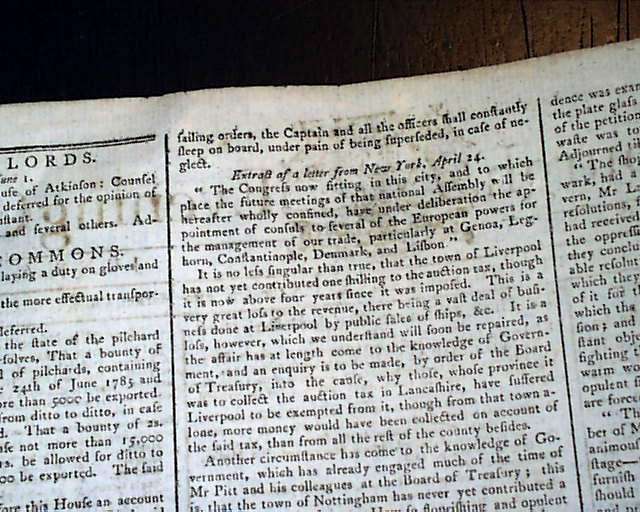 LORDS.
une 1.
use of Atkinson: Counsel
deferred for the opinion of
nstant.
and several others. Ad-
COMMONS.
laying a duty on gloves and
the more effectual transpor-
deferred.
the state of the pilchard
solves, That a bounty of
l of pilchards, containing
24th of June 1785 and
ore than 5000 be exported
from ditto to ditto, in case
d. That a bounty of 2s.
ase not more than 15,000
rs. be allowed for ditto to
00 be exported. The said
ore this House an account
ſailing orders, the Captain and all the officers ſhall conſtantly
ſleep on board, under pain of being ſuperſeded, in caſe of ne-
glect.
Extract of a letter from New York, April 24.
“ The Congreſs now ſitting in this city, and to which
place the future meetings of that national Aſſembly will be
hereafter wholly confined, have under deliberation the ap-
pointment of conſuls to ſeveral of the European powers for
the management of our trade, particularly at Genoa, Leg-
horn, Conſtantinople, Denmark, and Liſbon ”
It is no leſs ſingular than true, that the town of Liverpool
has not yet contributed one ſhilling to the auction tax, though
it is now above four years ſince it was impoſed. This is a
very great loſs to the revenue, there being a vaſt deal of buſi-
neſs done at Liverpool by public ſales of ſhips, &c. It is a
loſs, however, which we underſtand will ſoon be repaired, as
the affair has at length come to the knowledge of Govern-
ment, and an enquiry is to be made, by order of the Board
of Treaſury, into the cauſe, why thoſe, whoſe province it
was to collect the auction tax in Lancaſhire, have ſuffered
Liverpool to be exempted from it, though from that town a-
lone, more money would have been collected on account of
the ſaid tax, than from all the reſt of the county beſides.
Another circumſtance has come to the knowledge of Go-
vernment, which has already engaged much of the time of
Mr Pitt and his colleagues at the Board of Treaſury; this
is, that the town of Nottingham has never yet contributed a
How ſo flouriſhing and opulent
dence was exam
the plate glaſs
of the petition
waſte was to
Adjourned til
“ The ſho
wark, had a
vern, Mr L
reſolutions,
had receive
the oppreſſi
they concl
able reſolut
which they
of it for th
which tha
ſion; and
ſtant obje
fighting
warm wo
opulent
are force
“ Th
ber of M
animou
ſtage—
furniſh
ſhould